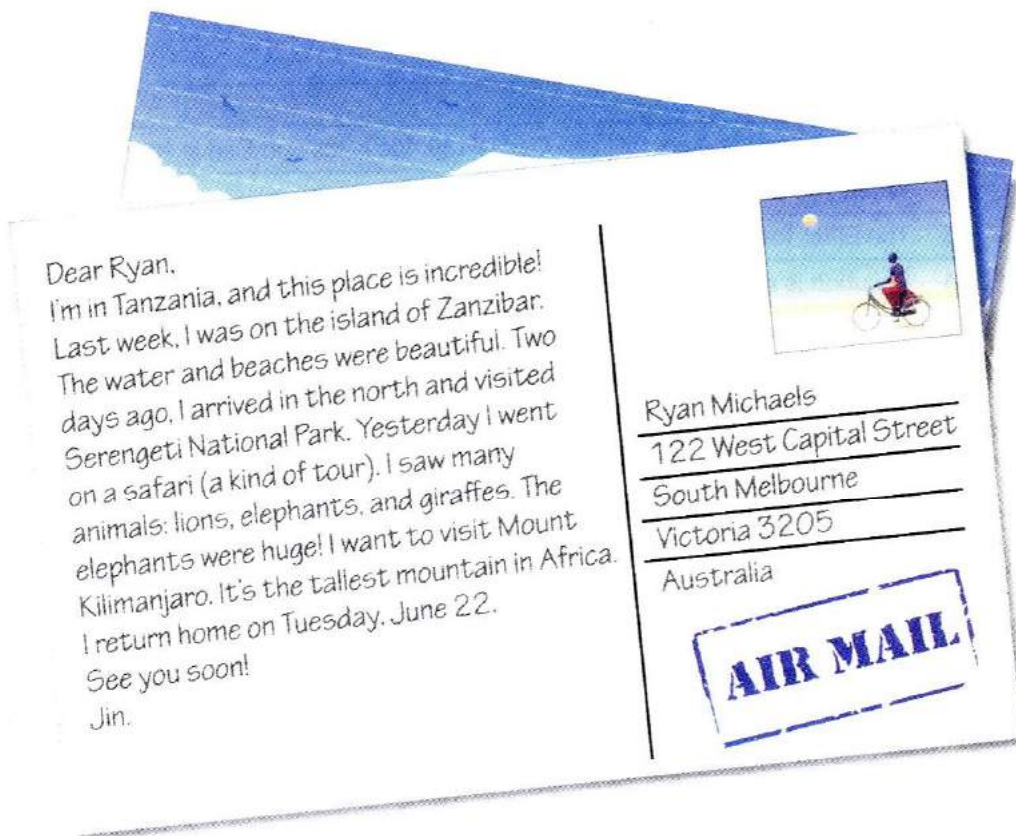 Dear Ryan,
I'm in Tanzania, and this place is incredible!
Last week, I was on the island of Zanzibar.
The water and beaches were beautiful. Two
days ago, I arrived in the north and visited
Serengeti National Park. Yesterday I went
on a safari (a kind of tour). I saw many
animals: lions, elephants, and giraffes. The
elephants were huge! I want to visit Mount
Kilimanjaro. It's the tallest mountain in Africa.
I return home on Tuesday, June 22.
See you soon!
Jin.
Ryan Michaels
122 West Capital Street
South Melbourne
Victoria 3205
Australia
AIR MAIL